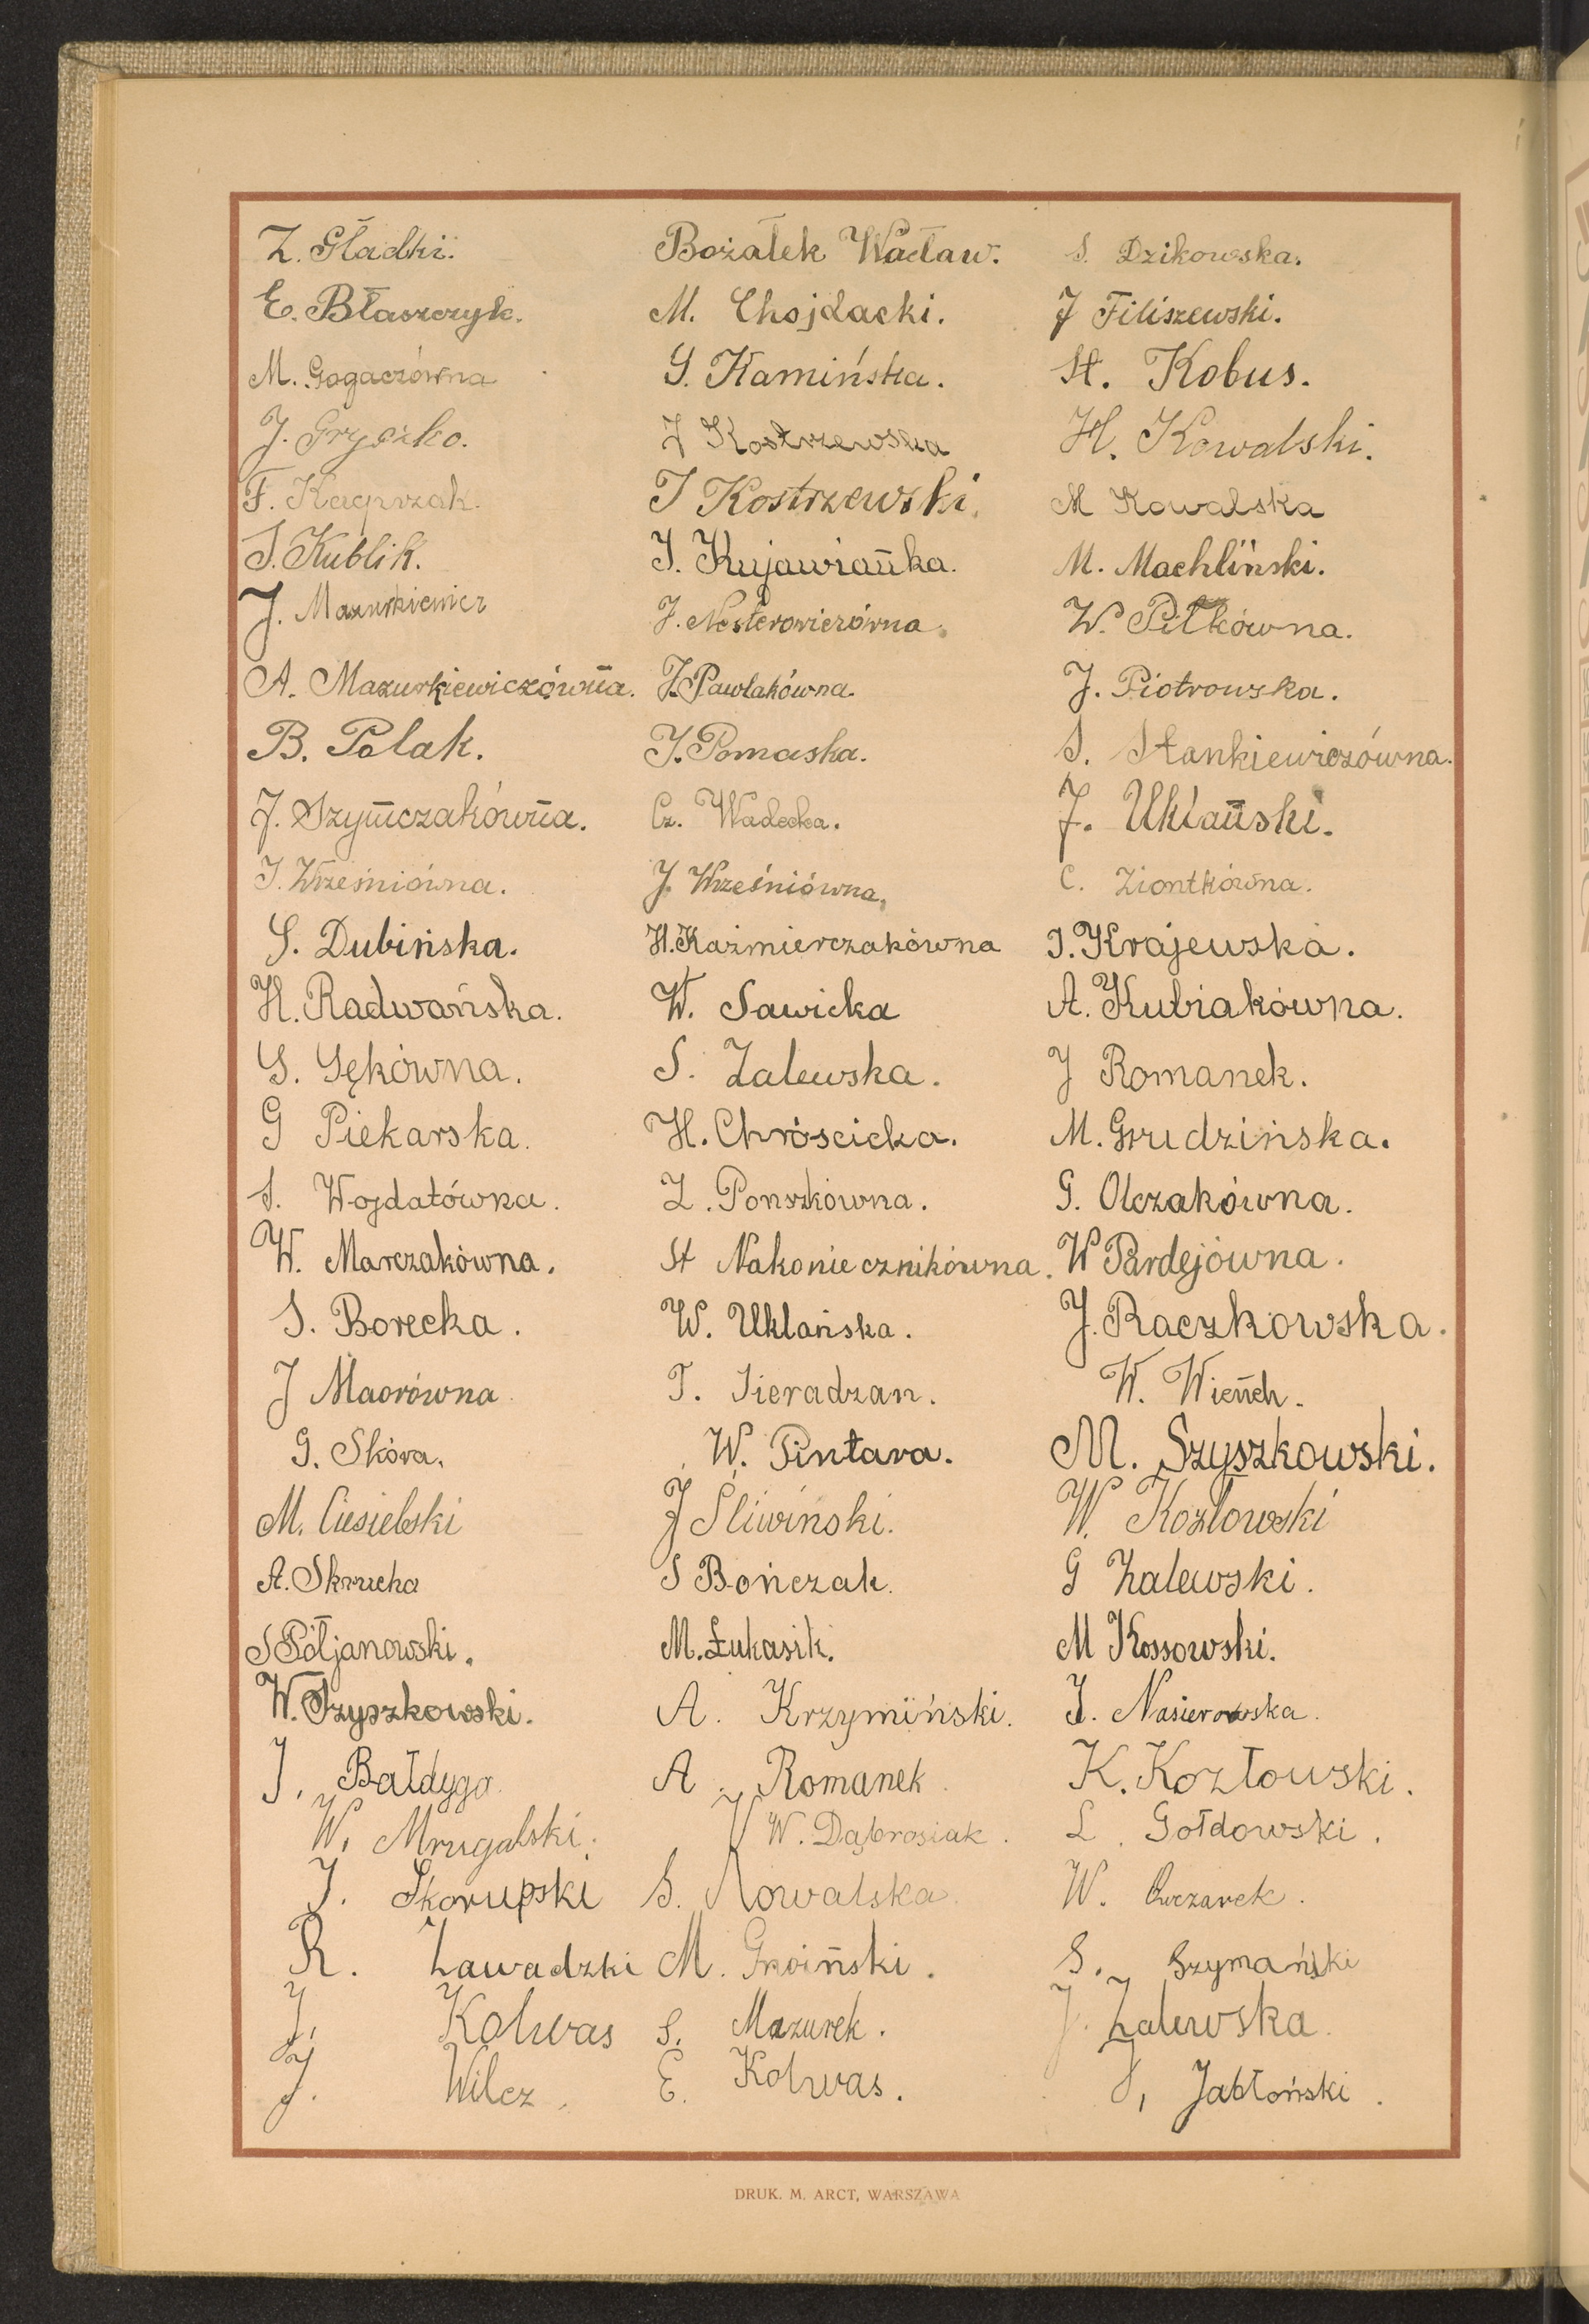 Z. Gładki. Bożałek Wacław. S. Dzikowska.
E. Błaszczyk. M. Chojdacki. J Filiszewski.
M. Gogaczówna S. Kamińska. St. Kobus.
J. Gryczko. J Kostrzewska H. Kowalski.
F. Kacprzak. J Kostrzewski. M Kowalska
S. Kublik. J. Kujawianka. M. Machliński.
J. Mazurkiewicz J. Nesterowiczówna. W. Pitkówna.
A. Mazurkiewiczówna. J. Pawlakówna. J. Piotrowska.
B. Polak. J. Pomaska. S. Stankiewiczówna.
J. Szymczakówna. Cz. Wadecka. J. Uklański.
J. Wrześniówna. J. Wrześniówna. C. Ziontkówna.
S. Dubińska. H. Kaźmierczakówna J. Krajewska.
H. Radwańska. W. Sawicka A. Kubiakówna.
S. Sękówna. S. Zalewska. J Romanek.
G Piekarska. H. Chróscicka. M. Grudzińska.
S. Wojdatówna. Z. Ponszkówna. G. Olczakówna.
W. Marczakówna. St Nakoniecznikówna. W Pardejówna.
S. Borecka. W. Uklańska. J. Raczkowska.
J Maorówna T. Sieradzan. W. Wiench.
G. Skóra. W. Pintara. M. Szyszkowski.
M. Ciesielski J Śliwiński. W. Kozłowski
A. Skrucha S Bończak. G Zalewski.
S Półjanowski. M. Łukasik. M Kossowski.
W. Szyszkowski. A. Krzymiński. J. Nasierowska.
J. Bałdyga. A. Romanek. K. Kozłowski.
W. Mrugalski. W. Dąbrosiak. L. Gołdowski.
J. Skorupski S. Kowalska. W. Owczarek.
R. Zawadzki M. Groiński. S. Szymański
J. Kolwas S. Mazurek. J. Zalewska.
J. Wilcz. E. Kolwas. J, Jabłoński.
DRUK. M. ARCT, WARSZAWA